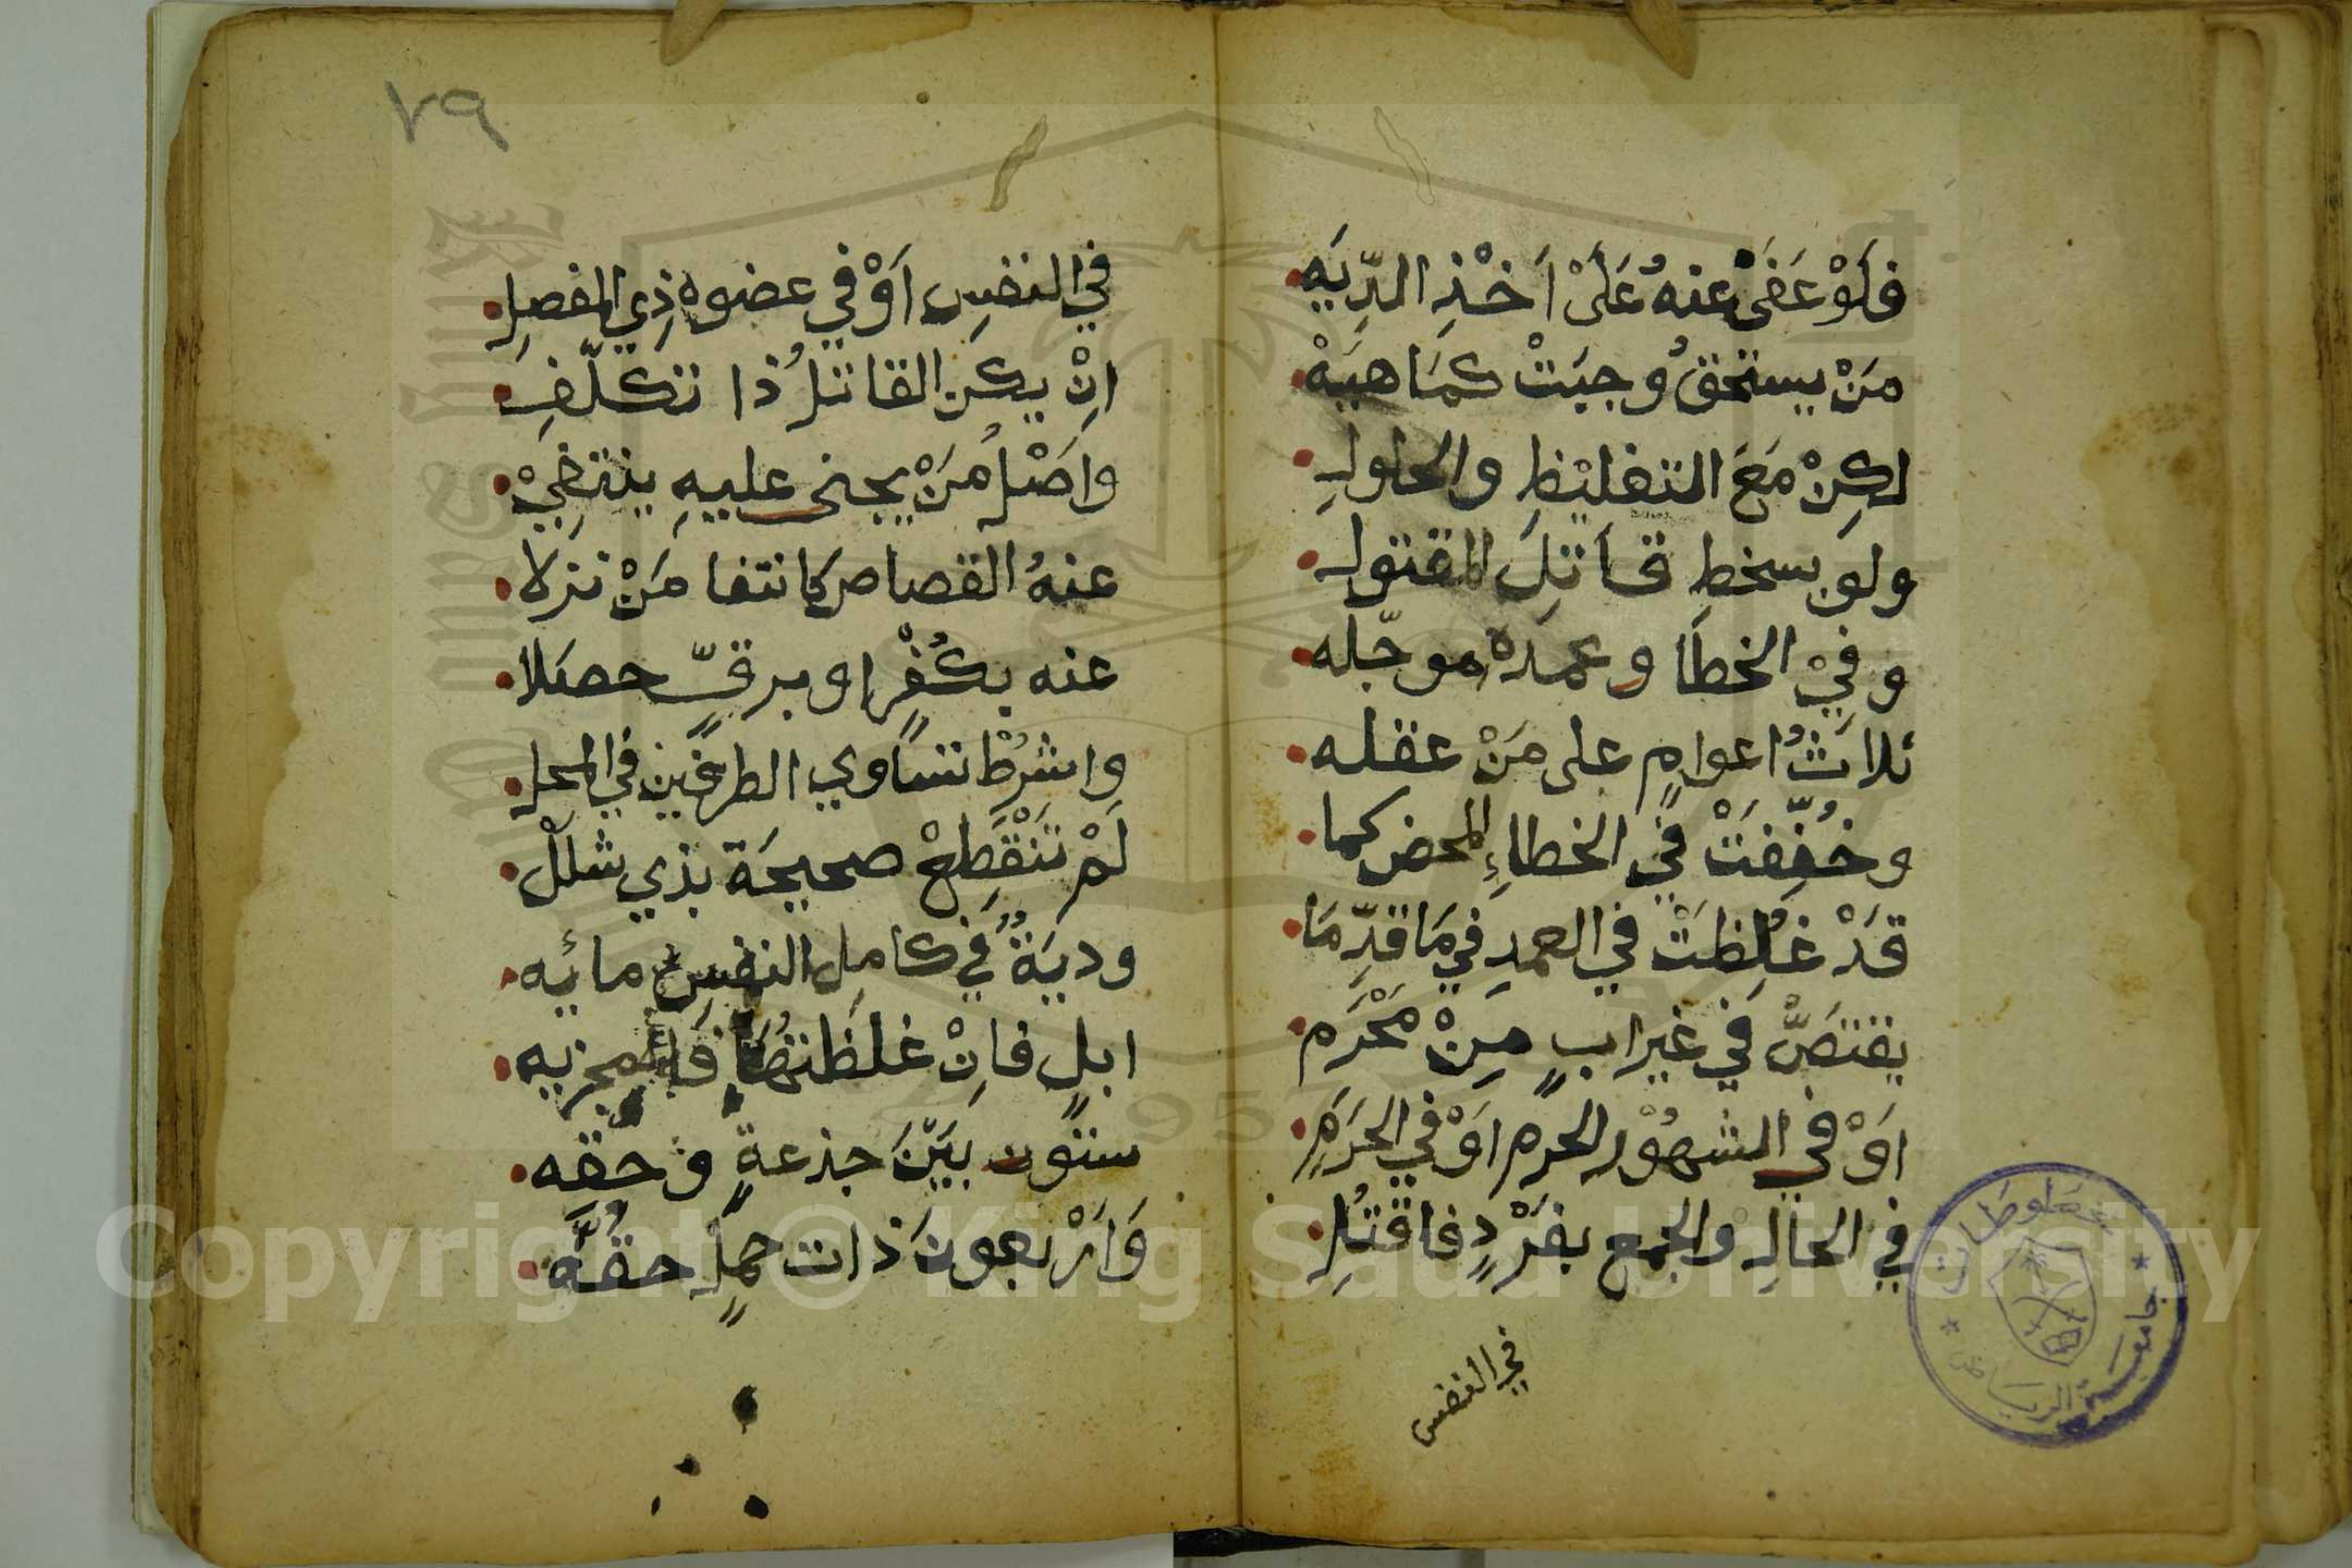 فَلَوْ عَفَىْ عنهُ عَلَىْ اَخْذِ الدِّيَه
مَنْ يستحقُ وجبَتْ كمَاهيَهْ
لكِنْ مَعَ التغليْظِ والحلولِ
ولو بسخطِ قَاتِلَ المقتولِ
وفيْ الخطَا وعمده موجّله
ثلاثُ اعوامٍ على مَنْ عقله
وخُفِّفَتْ في الخطاءِ المحض كما
قَدْ غُلِظَتْ في العمدِ فيمَا قدّمَا
يقتصَّ في غير ابٍ مِنْ مَحْرَم
اَوْ في الشهُوْر الحرم اوْ في الحَرَمِ
في الحالِ والجمع بفَرْدٍ فاقتُلِ
في النفس
٧٩
في النفسِ اَوْ في عضوه ذِي المفصلِ
انْ يكن القاتلُ ذا تكلّفِ
واصْلُ مَنْ يجنى عليهِ ينتفِيْ
عنهُ القصاص كانتفا مَنْ نزلا
عنه بكُفْرٍ او برقٍّ حصَلا
واشرطْ تساوي الطرفَين في المحل
لَمْ تَنْقَطِعْ صحيحَة بذي شللْ
وديَةٌ في كامل النفس مائه
ابلٍ فانْ غلظتهَا فالمجزيه
ستون بيَنْ جذعةٍ وحقه
وَارْبعونَ ذات حملٍ حقُّه
مخطوطات
جامعة الرياض
Copyright © King Saud University